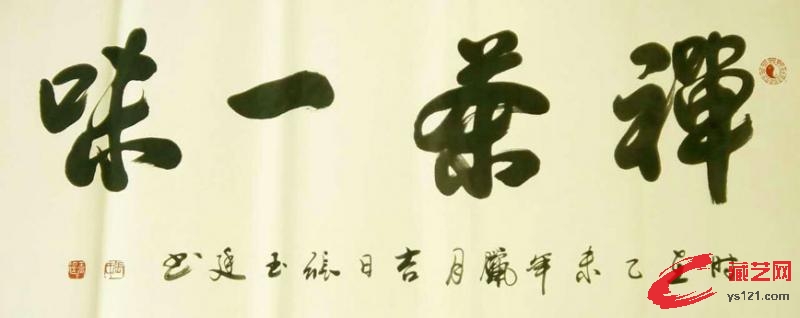 禪茶一味
時在乙未年臘月吉日張玉廷书
藏艺网
ys121.com